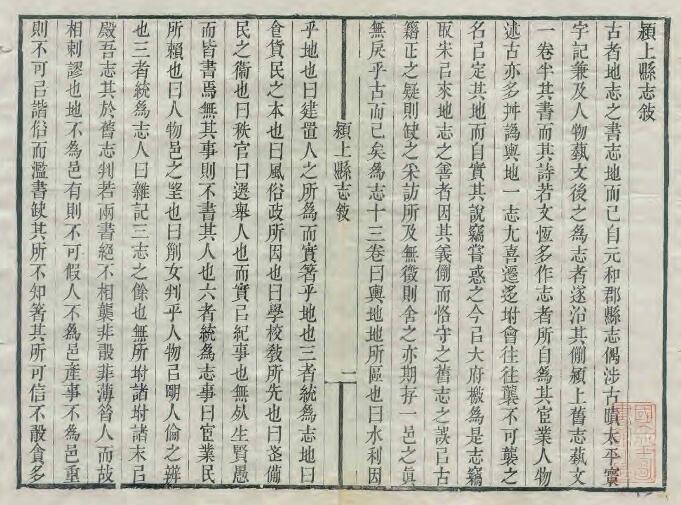 潁上縣志敘
古者地志之書志地而已自元和郡縣志偶涉古蹟太平寰
宇記兼及人物藝文後之為志者遂沿其例潁上舊志藝文
一卷半其書而其詩若文恆多作志者所自為其宦業人物
述古亦多舛譌輿地一志尤喜遷迻坿會往往襲不可襲之
名㠯定其地而自實其說竊嘗惑之今㠯大府檄為是志竊
取宋㠯來地志之善者因其義例而恪守之舊志之誤㠯古
籍正之疑則缺之采訪所及無徵則舍之亦期存一邑之真
無戾乎古而已矣為志十三卷曰輿地地所區也曰水利因
潁上縣志敘
一
乎地也曰建置人之所為而實箸乎地也三者統為志地曰
食貨民之本也曰風俗政所因也曰學校敎所先也曰武備
民之衞也曰秩官曰選舉人也而實㠯紀事也無㱾生賢愚
而皆書焉無其事則不書其人也六者統為志事曰宦業民
所賴也曰人物邑之望也曰列女判乎人物㠯朙人倫之辨
也三者統為志人曰雜記三志之餘也無所坿諸坿諸末㠯
殿吾志其於舊志判若兩書絕不相襲非㲄非薄昝人而故
相刺謬也地不為邑有則不可假人不為邑產事不為邑重
則不可㠯諧俗而濫書缺其所不知箸其所可信不㲄貪多